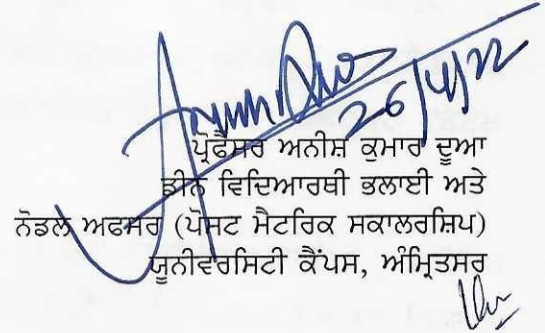 26/4/22
ਪ੍ਰੋਫੈਸਰ ਅਨੀਸ਼ ਕੁਮਾਰ ਦੂਆ
ਡੀਨ ਵਿਦਿਆਰਥੀ ਭਲਾਈ ਅਤੇ
ਨੋਡਲ ਅਫਸਰ (ਪੋਸਟ ਮੈਟਰਿਕ ਸਕਾਲਰਸ਼ਿਪ)
ਯੂਨੀਵਰਸਿਟੀ ਕੈਂਪਸ, ਅੰਮ੍ਰਿਤਸਰ